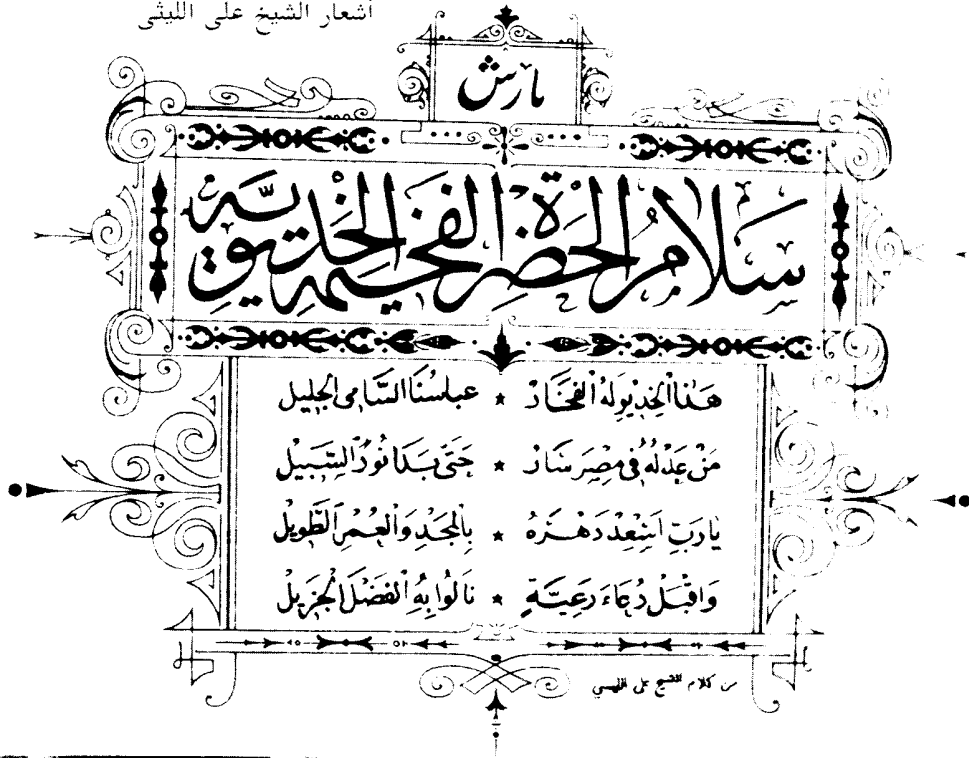 أشعار الشيخ على الليثى
مارش
سَلَامُ الحَضْرَةِ الفَخِيمَةِ الخِديوِيَّه
هَذَا الْخِدِيوِ لَهُ الْفَخَارْ ★ عباسُنَا السَّامِى الجَلِيل
مَنْ عَدْلُهُ فِى مِصْرَ سَارْ ★ حَتَّى بَدَا نُورُ السَّبِيلْ
يَارَبِّ اَسْعِدْ دَهْرَهُ ★ بِالْمَجْدِ وَالْعُمْرِ الطَّوِيلْ
وَاقْبَلْ دُعَاءَ رَعِيَّةٍ ★ نَالُوا بِهِ الْفَضْلَ الْجَزِيلْ
من كلام الشيخ على الليثى